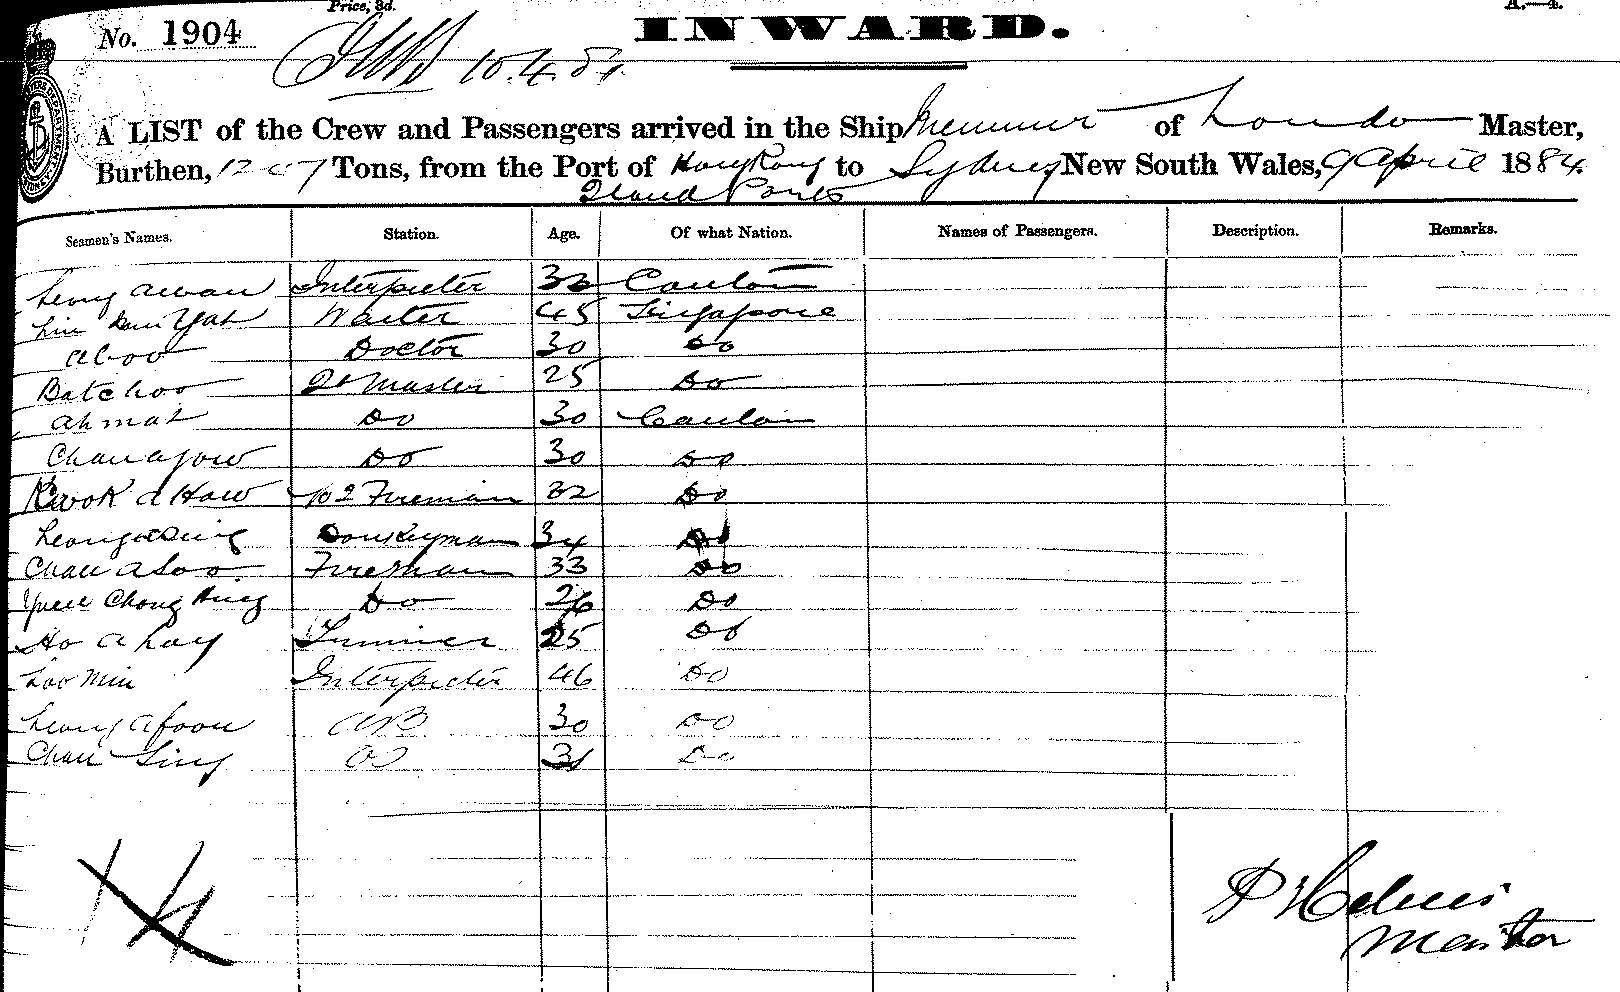 Price, 3d.
A.—4.
No. 1904
INWARD.
10.4.84
A LIST of the Crew and Passengers arrived in the Ship Memmuir of London Master,
Burthen, 1207 Tons, from the Port of Hong Kong to Sydney New South Wales, 9 April 1884.
Island Ports
Seamen's Names. Station. Age. Of what Nation. Names of Passengers. Description. Remarks.
Leong awan Interpreter 32 Canton
Lin Yah Waiter 45 Singapore
aboo Doctor 30 Do
Batchoo Qr Master 25 Do
ahmat Do 30 Canton
Chan a Do 30 Do
Kwok a How No 2 Fireman 32 Do
Leong Donkeyman 34 Do
Chan a Soo. Fireman 33 Do
Chong Do 26 Do
Ho a Trimmer 25 Do
Loo Min Interpreter 46 Do
Leong afoon AB 30 Do
Chan Sing OS 31 Do
14
P Helms
Master